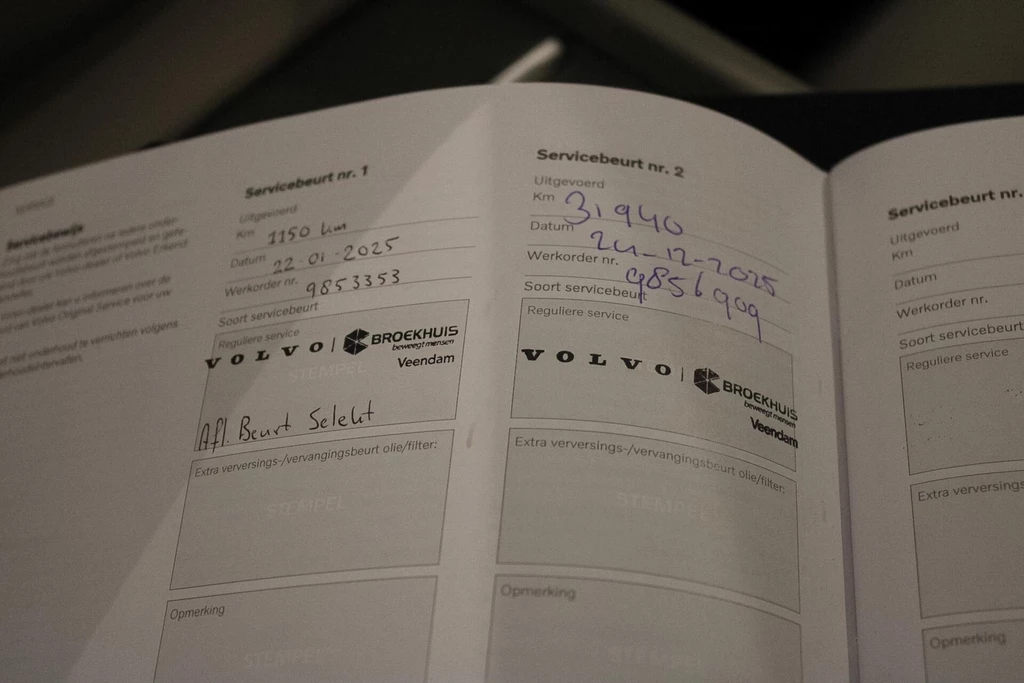 Servicebewijs
Servicebeurt nr. 1
Uitgevoerd
Km 1150 km
Datum 22-01-2025
Werkorder nr. 9853353
Soort servicebeurt
Reguliere service
VOLVO | BROEKHUIS
beweegt mensen
Veendam
STEMPEL
Afl. Beurt Selekt
Extra verversings-/vervangingsbeurt olie/filter:
STEMPEL
Opmerking
STEMPEL
Servicebeurt nr. 2
Uitgevoerd
Km 31940
Datum 24-12-2025
Werkorder nr. 9856909
Soort servicebeurt
Reguliere service
VOLVO | BROEKHUIS
beweegt mensen
Veendam
Extra verversings-/vervangingsbeurt olie/filter:
STEMPEL
Opmerking
STEMPEL
Servicebeurt nr.
Uitgevoerd
Km
Datum
Werkorder nr.
Soort servicebeurt
Reguliere service
Extra verversings
Opmerking